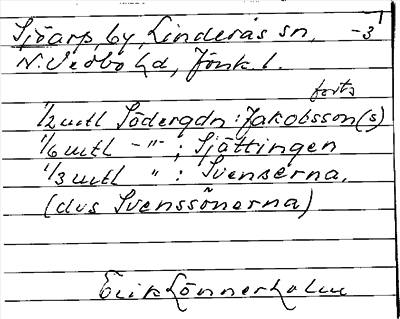 Sjöarp, by, Linderås sn, -3
N. Vedbo hd, Jönk. l.
forts
1/2 mtl Södergdn: Jakobsson(s)
1/6 mtl -"- ; Sjättingen
1/3 mtl " : Svenserna.
(dvs Svenssönerna)
Erik Lönnerholm